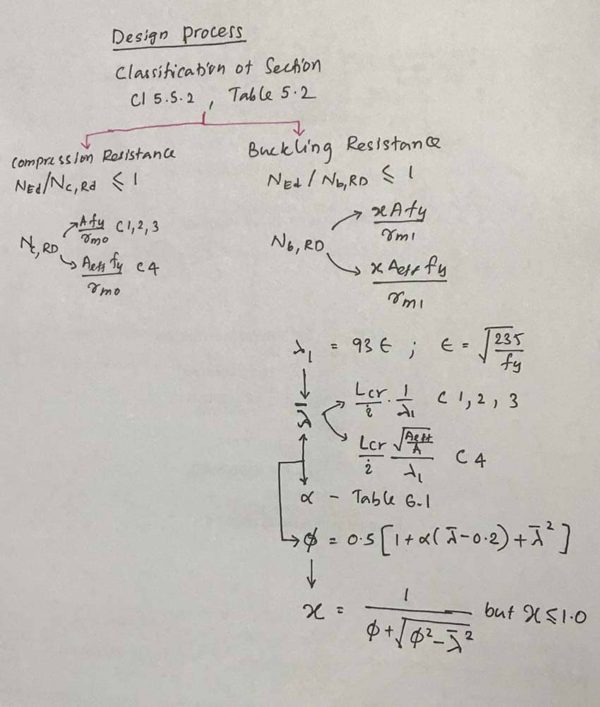 Design process
Classification of Section
Cl 5.5.2 , Table 5.2
Compression Resistance
NEd/Nc,Rd ≤ 1
Nc,RD
Afy/γm0 C 1,2,3
Aeff fy/γm0 C 4
Buckling Resistance
NEd / Nb,RD ≤ 1
Nb,RD
xAfy/γm1
x Aeff fy/γm1
λ1 = 93 ϵ ; ϵ = √235/fy
λ̄
Lcr/i · 1/λ1 C 1, 2, 3
Lcr/i √Aeff/A/λ1 C 4
α - Table 6.1
ϕ = 0.5 [1 + α(λ̄-0.2) + λ̄²]
x = 1/ϕ+√ϕ²-λ̄² but x ≤ 1.0